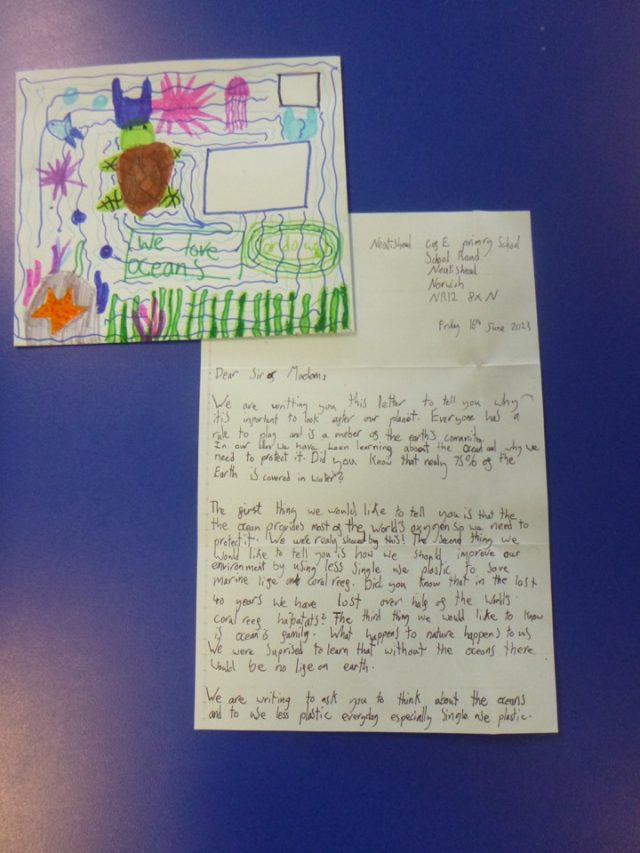 We love
oceans
or do
Neatishead C of E primry School
School Road
Neatishead
Norwich
NR12 8XN
Friday 16th June 2023
Dear Sir or Madam,
We are writting you this letter to tell you why
it is inportant to look after our planet. Everyone has a
role to play and is a meber of the earth's comunity.
In our we have been learning about the ocean and why we
need to protect it. Did you know that nealy 75% of the
Earth is covered in water?
The first thing we would like to tell you is that the
the ocean provides most of the world's oxygen so we need to
protect it. We were realy shoced by this! The second thing we
would like to tell you is how we should improve our
environment by using less single use plastic to save
marine life and coral reef. Did you know that in the last
40 years we have lost over half of the World's
coral reef habatats? The third thing we would like to know
is ocean is family. What happens to nature happens to us
We were suprised to learn that without the oceans there
would be no life on earth.
We are writing to ask you to think about the oceans
and to use less plastic everyday especially single use plastic.